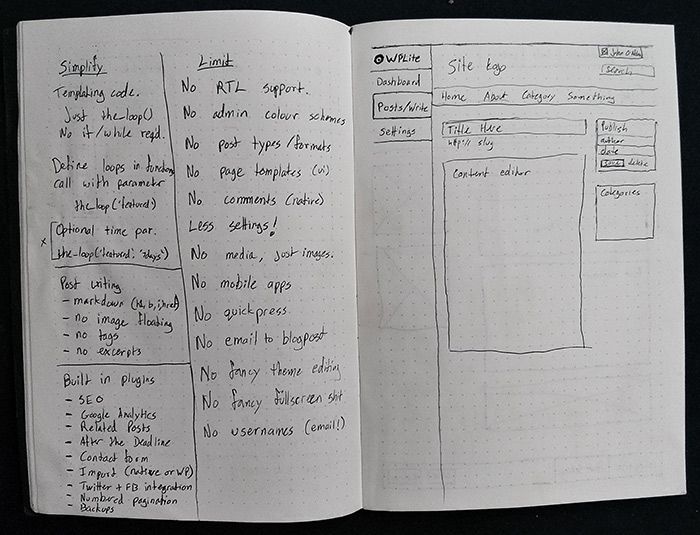 Simplify
Templating code.
Just the_loop()
No if/while reqd.
Define loops in functions
call with parameter
the_loop('featured')
x Optional time par.
the_loop('featured' '7days')
Post writing
- markdown
- no image floating
- no tags
- no excerpts
Built in plugins
- SEO
- Google Analytics
- Related Posts
- After the Deadline
- Contact form
- Import (native or WP)
- Twitter + FB integration
- Numbered pagination
- Backups
Limit
No RTL support.
No admin colour schemes
No post types/formats
No page templates (ui)
No comments (native)
Less settings!
No media, just images.
No mobile apps
No quickpress
No email to blogpost
No fancy theme editing
No fancy fullscreen shit
No usernames (email!)
WPLite
Dashboard
Posts/Write
Settings
Site Logo
John O'Nolan
Search
Home About Category Something
Title Here
http:// slug
Content editor
Publish
author
date
Save delete
Categories